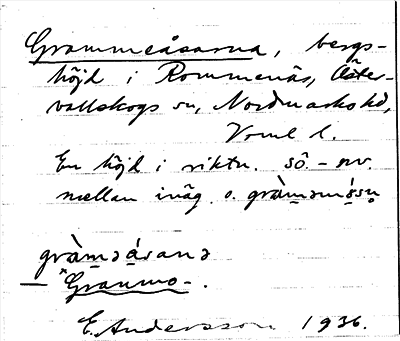 Grammeåsarna, bergs-
höjd i Rommenäs, Öster-
vallskogs sn, Nordmarks hd,
Vrml l.
En höjd i riktn. sö. - nv.
mellan inäg. o.
gràmǝásanǝ
— *Granmo-.
E. Andersson 1936.